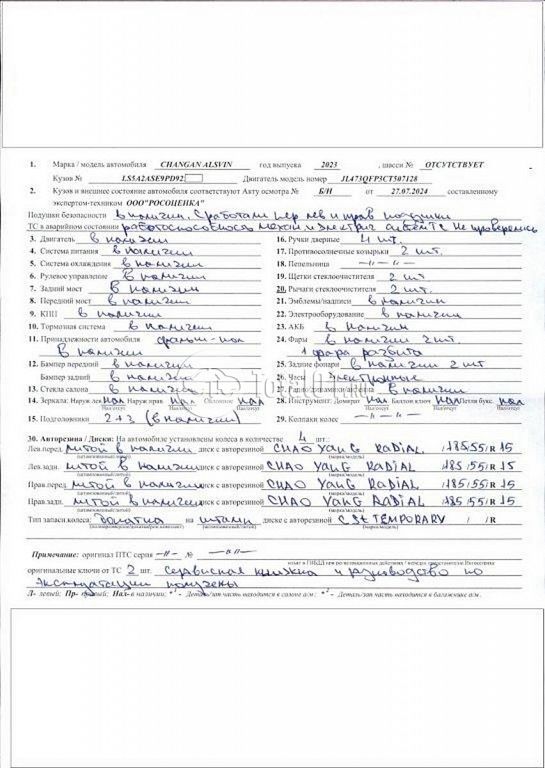 1. Марка / модель автомобиля CHANGAN ALSVIN год выпуска 2023 , шасси № ОТСУТСТВУЕТ
Кузов № LS5A2ASE9PD92 Двигатель модель номер JL473QFP3CT507128
2. Кузов и внешнее состояние автомобиля соответствуют Акту осмотра № Б/Н от 27.07.2024 составленному
экспертом-техником ООО"РОСОЦЕНКА"
Подушки безопасности в наличии. Сработали пер лев и прав подушки
ТС в аварийном состоянии работоспособность механ и электрич систем ТС не проверялись
3. Двигатель в наличии 16. Ручки дверные 4 шт.
4. Система питания в наличии 17. Противосолнечные козырьки 2 шт.
5. Система охлаждения в наличии 18. Пепельница —ıı—ıı—
6. Рулевое управление в наличии 19. Щетки стеклоочистителя 2 шт
7. Задний мост в наличии 20. Рычаги стеклоочистителя 2 шт.
8. Передний мост в наличии 21. Эмблемы/надписи в наличии
9. КПП в наличии 22. Электрооборудование в наличии
10. Тормозная система в наличии 23. АКБ в наличии
11. Принадлежности автомобиля 24. Фары в наличии 2 шт.
В наличии 1 фара разбита
12. Бампер передний в наличии 25. Задние фонари в наличии 2 шт
Бампер задний в наличии 26. Часы электронные
13. Стекла салона в наличии 27. Радио/динамики/антенна в наличии
14. Зеркала: Наруж лев нал Наруж прав нал Салонное нал 28. Инструмент: Домкрат нал Баллон ключ нал Петля букс. нал
15. Подголовники 2+3 (в наличии) 29. Колпаки колес —ıı—ıı—
30. Авторезина / Диски: На автомобиле установлены колеса в количестве 4 шт.:
Лев.перед литой в наличии диск с авторезиной CHAO YANG RADIAL /185/55/R 15
Лев.задн. литой в наличии диск с авторезиной CHAO YANG RADIAL /185/55/R 15
Прав.перед литой в наличии диск с авторезиной CHAO YANG RADIAL /185/55/R 15
Прав.задн. литой в наличии диск с авторезиной CHAO YANG RADIAL /185/55/R 15
Тип запасн.колеса: докатка на штамп диске с авторезиной TEMPORARY / /R
Примечание: оригинал ПТС серия —ıı— № —ıı—
оригинальные ключи от ТС 2 шт. сервисная книжка и руководство по
эксплуатации получены
Л- левый; Пр- правый; Нал- в наличии; *¹ - Деталь/зап часть находится в салоне а/м; *² - Деталь/зап часть находится в багажнике а/м.